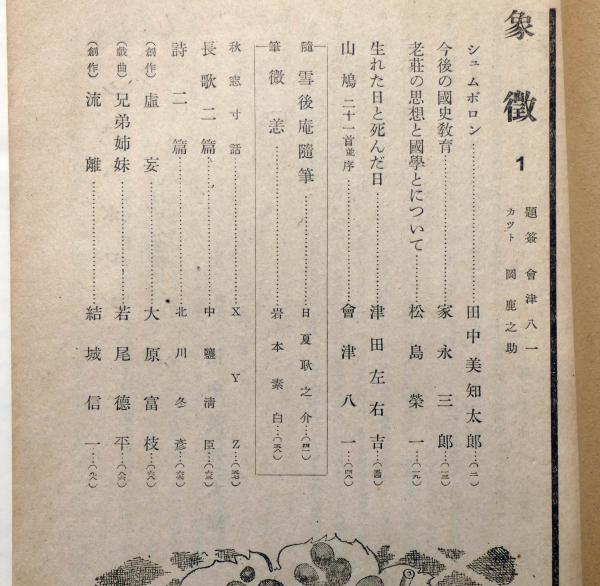 象徴 1
題簽 會津八一
カツト 岡鹿之助
シュムボロン……田中美知太郎…(二)
今後の國史敎育……家永三郎…(一三)
老莊の思想と國學とについて……松島榮一…(一九)
生れた日と死んだ日……津田左右吉…
山鳩 二十一首並序……會津八一…(四八)
隨筆
雪後庵隨筆……日夏耿之介…
微恙……岩本素白…(五八)
秋窓寸話……XYZ…
長歌二篇……中鹽淸臣…
詩二篇……北川冬彥…
(創作)虛妄……大原富枝…(六八)
(戲曲)兄弟姉妹……若尾德平…(八六)
(創作)流離……結城信一…(九八)